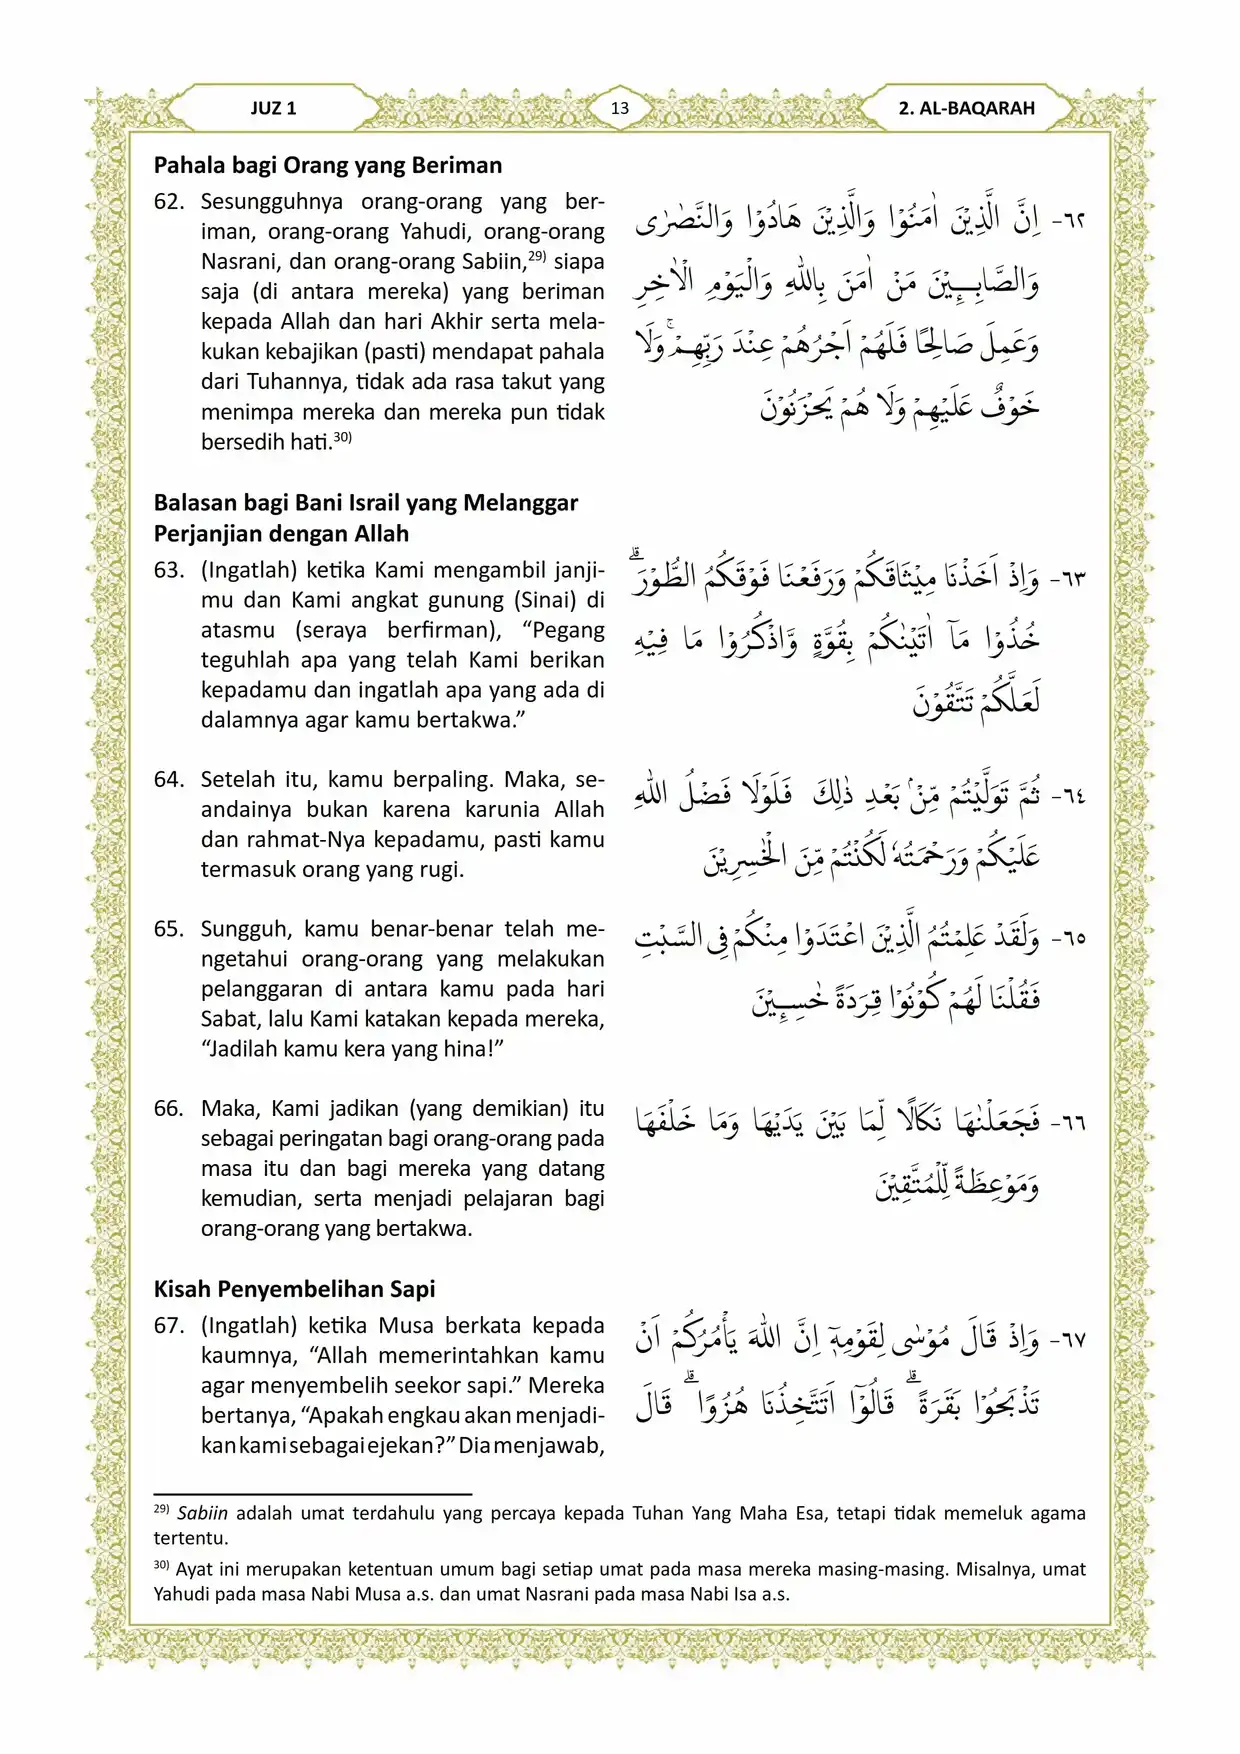 JUZ 1
13
2. AL-BAQARAH
Pahala bagi Orang yang Beriman
62. Sesungguhnya orang-orang yang ber-
iman, orang-orang Yahudi, orang-orang
Nasrani, dan orang-orang Sabiin,29) siapa
saja (di antara mereka) yang beriman
kepada Allah dan hari Akhir serta mela-
kukan kebajikan (pasti) mendapat pahala
dari Tuhannya, tidak ada rasa takut yang
menimpa mereka dan mereka pun tidak
bersedih hati.30)
٦٢- اِنَّ الَّذِيْنَ اٰمَنُوْا وَالَّذِيْنَ هَادُوْا وَالنَّصٰرٰى
وَالصَّابِـِٕيْنَ مَنْ اٰمَنَ بِاللّٰهِ وَالْيَوْمِ الْاٰخِرِ
وَعَمِلَ صَالِحًا فَلَهُمْ اَجْرُهُمْ عِنْدَ رَبِّهِمْۚ وَلَا
خَوْفٌ عَلَيْهِمْ وَلَا هُمْ يَحْزَنُوْنَ
Balasan bagi Bani Israil yang Melanggar
Perjanjian dengan Allah
63. (Ingatlah) ketika Kami mengambil janji-
mu dan Kami angkat gunung (Sinai) di
atasmu (seraya berfirman), “Pegang
teguhlah apa yang telah Kami berikan
kepadamu dan ingatlah apa yang ada di
dalamnya agar kamu bertakwa.”
٦٣- وَاِذْ اَخَذْنَا مِيْثَاقَكُمْ وَرَفَعْنَا فَوْقَكُمُ الطُّوْرَۗ
خُذُوْا مَآ اٰتَيْنٰكُمْ بِقُوَّةٍ وَّاذْكُرُوْا مَا فِيْهِ
لَعَلَّكُمْ تَتَّقُوْنَ
64. Setelah itu, kamu berpaling. Maka, se-
andainya bukan karena karunia Allah
dan rahmat-Nya kepadamu, pasti kamu
termasuk orang yang rugi.
٦٤- ثُمَّ تَوَلَّيْتُمْ مِّنْۢ بَعْدِ ذٰلِكَ فَلَوْلَا فَضْلُ اللّٰهِ
عَلَيْكُمْ وَرَحْمَتُهٗ لَكُنْتُمْ مِّنَ الْخٰسِرِيْنَ
65. Sungguh, kamu benar-benar telah me-
ngetahui orang-orang yang melakukan
pelanggaran di antara kamu pada hari
Sabat, lalu Kami katakan kepada mereka,
“Jadilah kamu kera yang hina!”
٦٥- وَلَقَدْ عَلِمْتُمُ الَّذِيْنَ اعْتَدَوْا مِنْكُمْ فِى السَّبْتِ
فَقُلْنَا لَهُمْ كُوْنُوْا قِرَدَةً خٰسِـِٕيْنَ
66. Maka, Kami jadikan (yang demikian) itu
sebagai peringatan bagi orang-orang pada
masa itu dan bagi mereka yang datang
kemudian, serta menjadi pelajaran bagi
orang-orang yang bertakwa.
٦٦- فَجَعَلْنٰهَا نَكَالًا لِّمَا بَيْنَ يَدَيْهَا وَمَا خَلْفَهَا
وَمَوْعِظَةً لِّلْمُتَّقِيْنَ
Kisah Penyembelihan Sapi
67. (Ingatlah) ketika Musa berkata kepada
kaumnya, “Allah memerintahkan kamu
agar menyembelih seekor sapi.” Mereka
bertanya, “Apakah engkau akan menjadi-
kan kami sebagai ejekan?” Dia menjawab,
٦٧- وَاِذْ قَالَ مُوْسٰى لِقَوْمِهٖٓ اِنَّ اللّٰهَ يَأْمُرُكُمْ اَنْ
تَذْبَحُوْا بَقَرَةًۗ قَالُوْٓا اَتَتَّخِذُنَا هُزُوًاۗ قَالَ
29) Sabiin adalah umat terdahulu yang percaya kepada Tuhan Yang Maha Esa, tetapi tidak memeluk agama
tertentu.
30) Ayat ini merupakan ketentuan umum bagi setiap umat pada masa mereka masing-masing. Misalnya, umat
Yahudi pada masa Nabi Musa a.s. dan umat Nasrani pada masa Nabi Isa a.s.